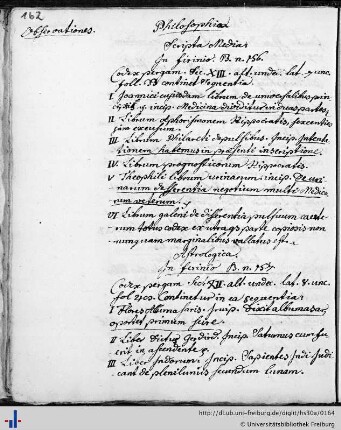 162
Philosophica
Observationes.
Scripta Medica
In scrinio B. n. 156.
Codex pergam. Sec. XIII. alt. undec. lat. 8 unc.
foll. continet sequentia
I Joannici eiusdem librum de
incip. Medicina dividitur in duas partes,
II. Librum Aphorismorum Hippocratis,
jam excusum.
III. Librum Philareti de pulsibus. Incip. Intenti-
onem habemus in praesenti inscriptione.
IV. Librum prognosticorum Hippocratis.
V Theophili librum urinarum, incip. De uri-
narum differentia negotium multi Medico-
rum veterum
VI Librum galeni de differentia pulsuum
totus codex ex utraque parte copiosis non
nunquam marginalibus vallatus est.
Astrologica.
In scrinio B. n. 157.
Codex pergam. Sec. XII. alt. undec. lat. 8. unc.
fol. 210. Continet ur in eo sequentia
I Flores Albumasaris. Incip. Dixit albumasar,
oportet primum scire.
II Liber Dictus Incip. Saturnus cum fu-
erit in ascendente
III Liber Indorum. Incip. Sapientes Indi Judi-
cant de pleniluniis secundum lunam.
http://dl.ub.uni-freiburg.de/diglit/hs10a/0164
© Universitätsbibliothek Freiburg